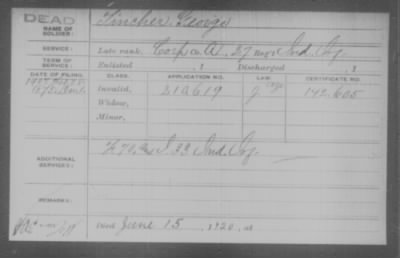 DEAD
NAME OF SOLDIER: Fincher, George
SERVICE: Late rank, Corp Co A, 27 Reg't Ind. Inf.
TERM OF SERVICE: Enlisted , 1 Discharged , 1
DATE OF FILING. CLASS. APPLICATION NO. LAW. CERTIFICATE NO.
Invalid, 210619 142.605
Widow,
Minor,
ADDITIONAL SERVICES: K 70, & I 33 Ind. Inf.
REMARKS:
Died June 15, 1920, at